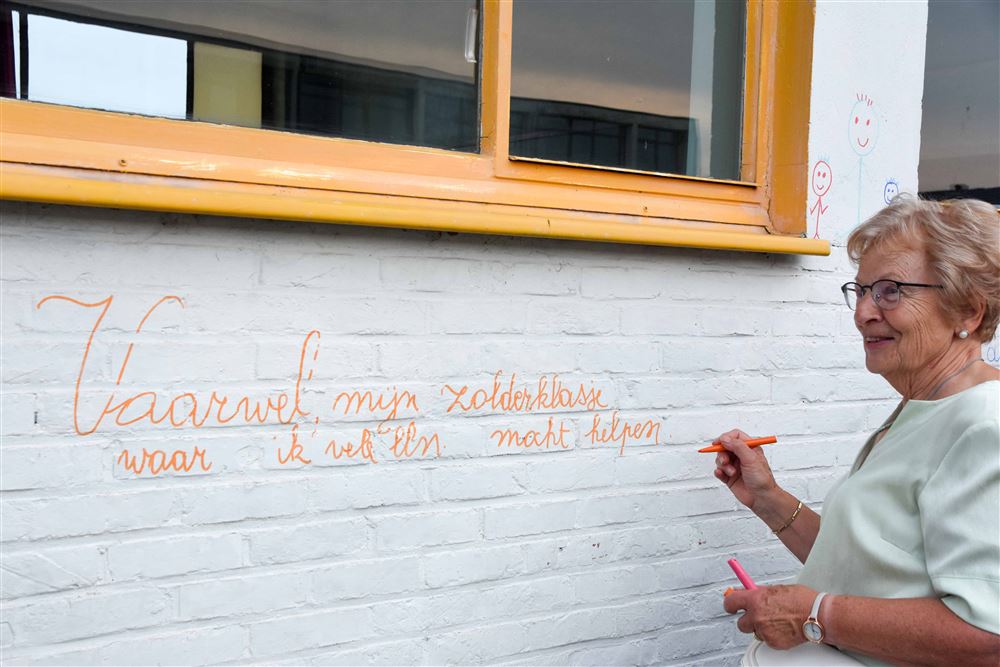 Vaarwel, mijn zolderklasje
waar ik vele lln mocht helpen